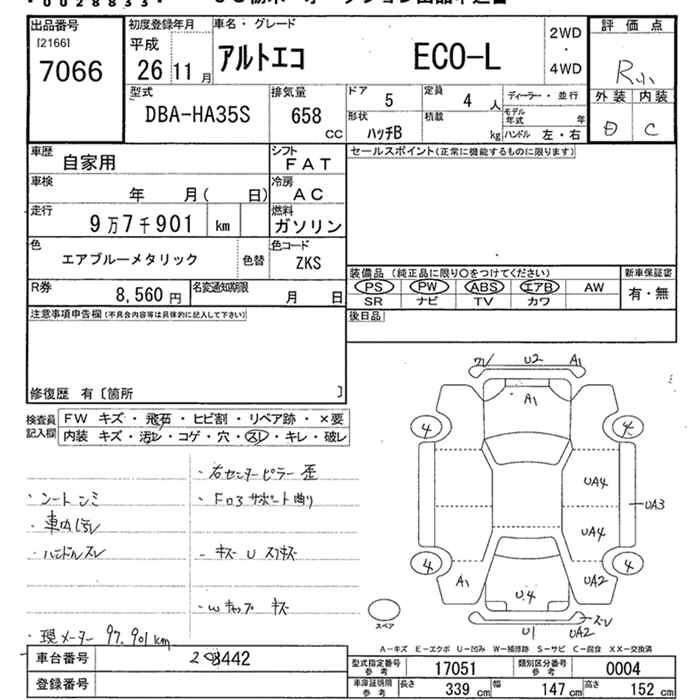 出品番号
[2166]
7066
初度登録年月
平成
26 11 月
車名 ・ グレード
アルトエコ ECO-L
2WD
・
4WD
評 価 点
R小
外 装 内 装
D C
型式
DBA-HA35S
排気量
658
CC
ドア
5
定員
4 人
形状
ハッチB
積載
kg
ディーラー ・ 並行
モデル年式 年
ハンドル 左・右
車歴
自家用
シフト
FAT
車検
年 月( 日)
冷房
AC
走行
9万7千901 km
燃料
ガソリン
色
エアブルーメタリック
色替
色コード
ZKS
R券
8,560 円
名変通知期限
月 日
セールスポイント(正常に機能するものに限ります)
装備品 (純正品に限り○をつけてください)
PS PW ABS エアB AW
SR ナビ TV カワ
新車保証書
有・無
後日品
注意事項申告欄(不具合内容等は具体的に記入して下さい)
修復歴 有〔箇所 〕
検査員記入欄
FW キズ ・ 飛石 ・ ヒビ割 ・ リペア跡 ・ ×要
内装 キズ ・ 汚レ ・ コゲ ・ 穴 ・ スレ ・ キレ ・ 破レ
・右センターピラー 歪
・シートシミ
・車内汚レ
・ハンドルスレ
・キズ U スリキズ
・Wキャップ キズ
・現メーター 97,901km
ワレ U2 A1
A1
4 4
UA4
UA3
UA4
4 4
A1 U4 UA2
スレ
U1 UA2
スペア
A－キズ E－エクボ U－凹み W－補修跡 S－サビ C－腐食 XX－交換済
車台番号
登録番号
型式指定番号
参 考
17051
類別区分番号
参 考
0004
車庫証明用
参 考
長さ 339 cm 幅 147 cm 高さ 152 cm